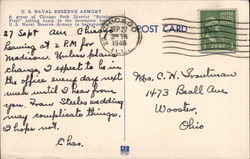 U. S. NAVAL RESERVE ARMORY
A group of Chicago Park District "Rainbow
Fleet" sailing boats in the downtown
U. S. Naval Reserve Armory in background
POST CARD
CHICAGO
SEP 27
1946
1 CENT 1
27 Sept Am Chicago
Leaving at 2 P.M for
Madison. Unless plans
change, I expect to be in
the office every day next
week until I hear from
you. Fran Steles wedding
may complicate things.
I hope not.
Chas.
Mrs. C. H. Troutman
1473 Beall Ave
Wooster,
Ohio